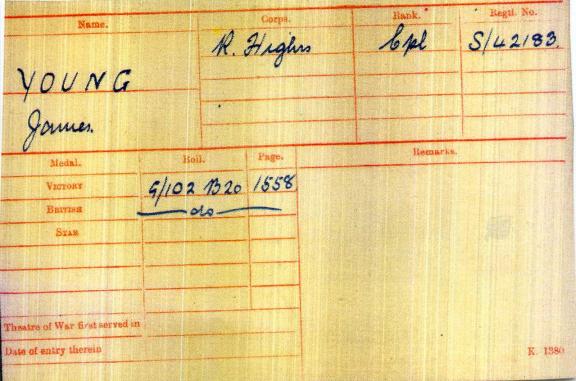 Name. Corps. Rank. Regtl. No.
R. Highrs Cpl S/42183.
YOUNG
James.
Medal. Roll. Page. Remarks.
VICTORY G/102 B20 1558
BRITISH do
STAR
Theatre of War first served in
Date of entry therein
K. 1380